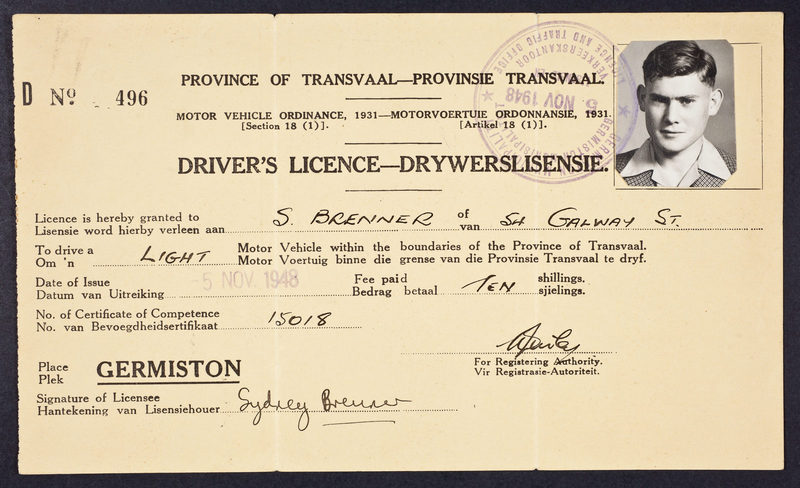 D No. 496
PROVINCE OF TRANSVAAL—PROVINSIE TRANSVAAL.
MOTOR VEHICLE ORDINANCE, 1931—MOTORVOERTUIE ORDONNANSIE, 1931.
[Section 18 (1)]. [Artikel 18 (1)].
5 NOV 1948
LICENCE AND TRAFFIC OFFICE
VERKEERSKANTOOR
DRIVER'S LICENCE—DRYWERSLISENSIE.
Licence is hereby granted to S. BRENNER of 54 GALWAY ST.
Lisensie word hierby verleen aan van
To drive a LIGHT Motor Vehicle within the boundaries of the Province of Transvaal.
Om 'n Motor Voertuig binne die grense van die Provinsie Transvaal te dryf.
Date of Issue 5 NOV. 1948 Fee paid TEN shillings.
Datum van Uitreiking Bedrag betaal sjielings.
No. of Certificate of Competence 15018
No. van Bevoegdheidsertifikaat
For Registering Authority.
Vir Registrasie-Autoriteit.
Place GERMISTON
Plek
Signature of Licensee Sydney Brenner
Hantekening van Lisensiehouer